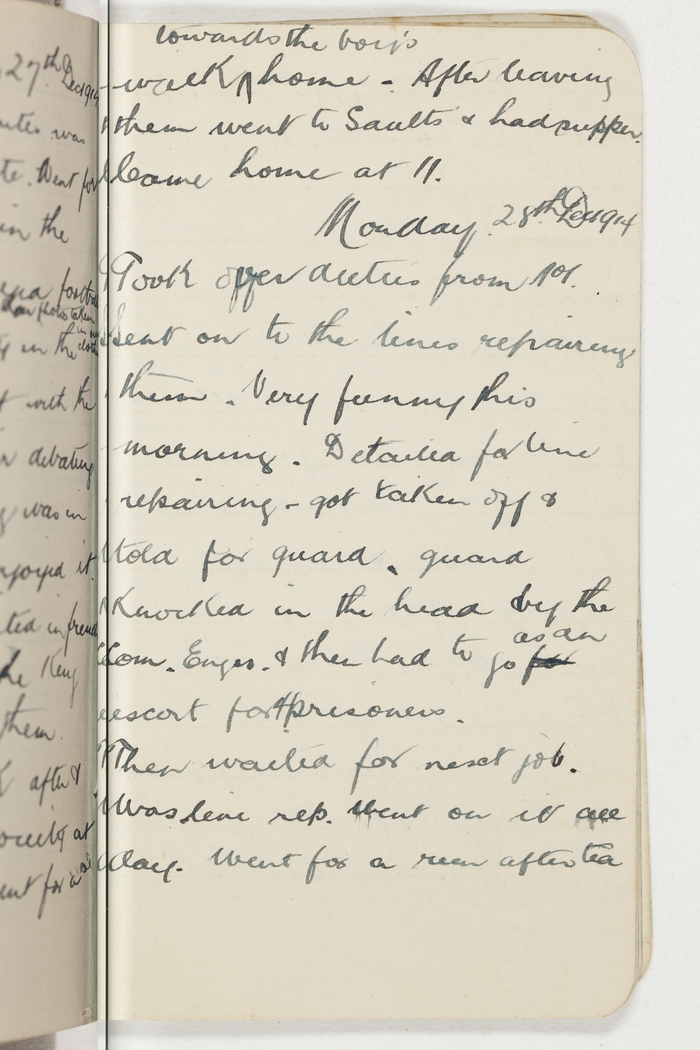 27th Dec 1914
was
Went for
in the
football
photos taken
in the
with the
debating
was in
enjoyed it.
in french
the King
them.
after &
at
went for a
towards the boy's
walk ∧ home - After leaving
them went to Saults & had supper.
Came home at 11.
Monday. 28th Dec 1914
Took over duties from 1st.
Sent on to the lines repairing
them. Very funny this
morning. Detailed for line
repairing - got taken off &
told for guard. guard
Knocked in the head by the
as an
Com. Engrs. & then had to go for
escort for 4 prisoners.
Then waited for next job.
Was line rep. Went on it all
day. Went for a run after tea